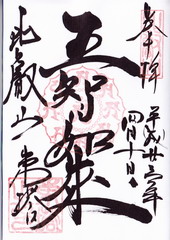 奉拝
平成廿三年
四月十日
五智如来
比叡山 東塔